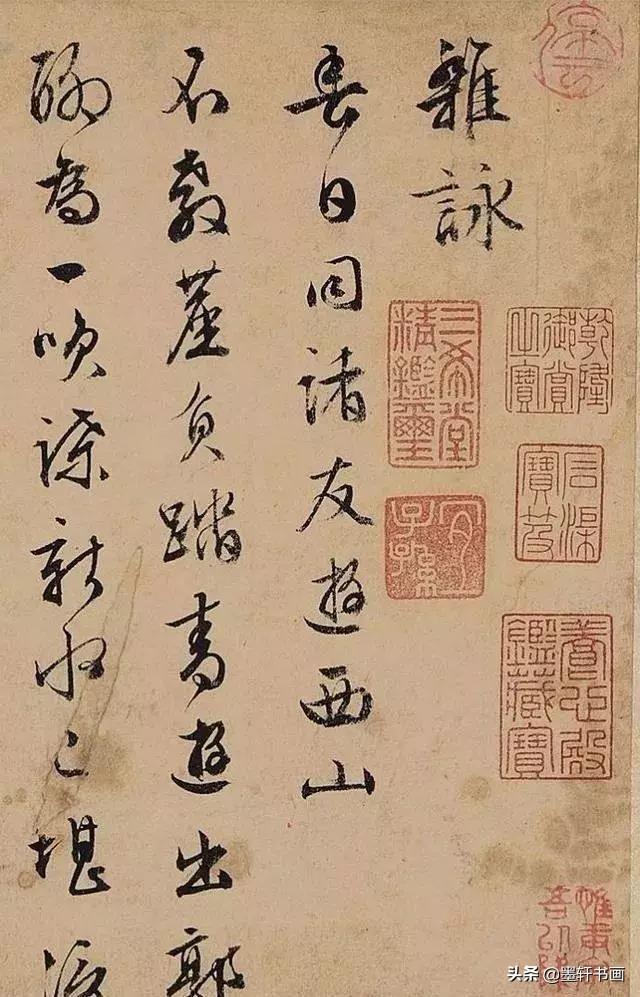 雜詠
春日同諸友遊西山
不教虛負踏青遊出郭
聊為一咲謀新水已堪
乾隆御賞之寶
三希堂精鑑璽
石渠寶笈
宜子孫
養心殿鑑藏寶
头条 @墨轩书画